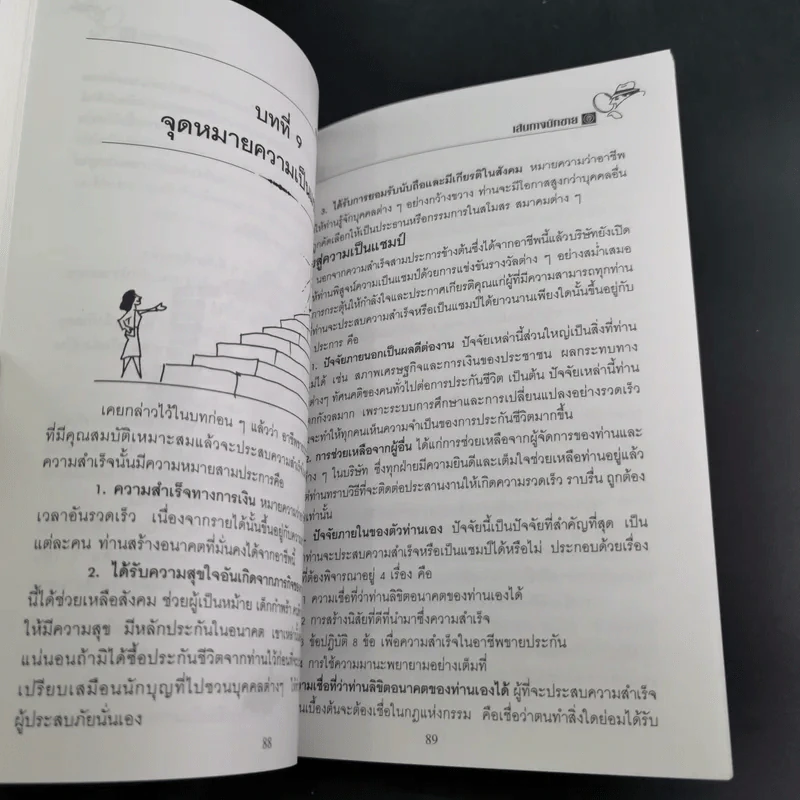 บทที่ 9
จุดหมายความเป็น
เคยกล่าวไว้ในบทก่อน ๆ แล้วว่า
ที่มีคุณสมบัติเหมาะสมแล้วจะประสบความสำเร็จ
ความสำเร็จนั้นมีความหมายสามประการคือ
1. ความสำเร็จทางการเงิน หมายความว่า
เวลาอันรวดเร็ว เนื่องจากรายได้นั้นขึ้นอยู่กับความ
แต่ละคน ท่านสร้างอนาคตที่มั่นคงได้จากอาชีพนี้
2. ได้รับความสุขใจอันเกิดจากภารกิจของ
นี้ได้ช่วยเหลือสังคม ช่วยผู้เป็นหม้าย เด็กกำพร้า
ให้มีความสุข มีหลักประกันในอนาคต
แน่นอนถ้ามิได้ซื้อประกันชีวิตจากท่านไว้ก่อน
เปรียบเสมือนนักบุญที่ไปชวนบุคคลต่างๆ
ผู้ประสบภัยนั่นเอง
88
เส้นทางนักขาย
3. ได้รับการยอมรับนับถือและมีเกียรติในสังคม หมายความว่าอาชีพ
ให้ท่านรู้จักบุคคลต่าง ๆ อย่างกว้างขวาง ท่านจะมีโอกาสสูงกว่าบุคคลอื่น
ถูกคัดเลือกให้เป็นประธานหรือกรรมการในสโมสร สมาคมต่าง ๆ
สู่ความเป็นแชมป์
นอกจากความสำเร็จสามประการข้างต้นซึ่งได้จากอาชีพนี้แล้วบริษัทยังเปิด
ให้ท่านพิสูจน์ความเป็นแชมป์ด้วยการแข่งขันรางวัลต่าง ๆ อย่างสม่ำเสมอ
การกระตุ้นให้กำลังใจและประกาศเกียรติคุณแก่ผู้ที่มีความสามารถทุกท่าน
ท่านจะประสบความสำเร็จหรือเป็นแชมป์ได้ยาวนานเพียงใดนั้นขึ้นอยู่กับ
ประการ คือ
1. ปัจจัยภายนอกเป็นผลดีต่องาน ปัจจัยเหล่านี้ส่วนใหญ่เป็นสิ่งที่ท่าน
ไม่ได้ เช่น สภาพเศรษฐกิจและการเงินของประชาชน ผลกระทบทาง
ต่างๆ ทัศนคติของคนทั่วไปต่อการประกันชีวิต เป็นต้น ปัจจัยเหล่านี้ท่าน
กังวลมาก เพราะระบบการศึกษาและการเปลี่ยนแปลงอย่างรวดเร็ว
จะทำให้ทุกคนเห็นความจำเป็นของการประกันชีวิตมากขึ้น
2. การช่วยเหลือจากผู้อื่น ได้แก่การช่วยเหลือจากผู้จัดการของท่านและ
ต่าง ๆ ในบริษัท ซึ่งทุกฝ่ายมีความยินดีและเต็มใจช่วยเหลือท่านอยู่แล้ว
ท่านทราบวิธีที่จะติดต่อประสานงานให้เกิดความรวดเร็ว ราบรื่น ถูกต้อง
เท่านั้น
ปัจจัยภายในของตัวท่านเอง ปัจจัยนี้เป็นปัจจัยที่สำคัญที่สุด เป็น
ท่านจะประสบความสำเร็จหรือเป็นแชมป์ได้หรือไม่ ประกอบด้วยเรื่อง
ที่ต้องพิจารณาอยู่ 4 เรื่อง คือ
ความเชื่อที่ว่าท่านลิขิตอนาคตของท่านเองได้
2 การสร้างนิสัยที่ดีที่นำมาซึ่งความสำเร็จ
ข้อปฏิบัติ 8 ข้อ เพื่อความสำเร็จในอาชีพขายประกัน
การใช้ความมานะพยายามอย่างเต็มที่
ความเชื่อที่ว่าท่านลิขิตอนาคตของท่านเองได้ ผู้ที่จะประสบความสำเร็จ
เบื้องต้นจะต้องเชื่อในกฎแห่งกรรม คือเชื่อว่าตนทำสิ่งใดย่อมได้รับ
89